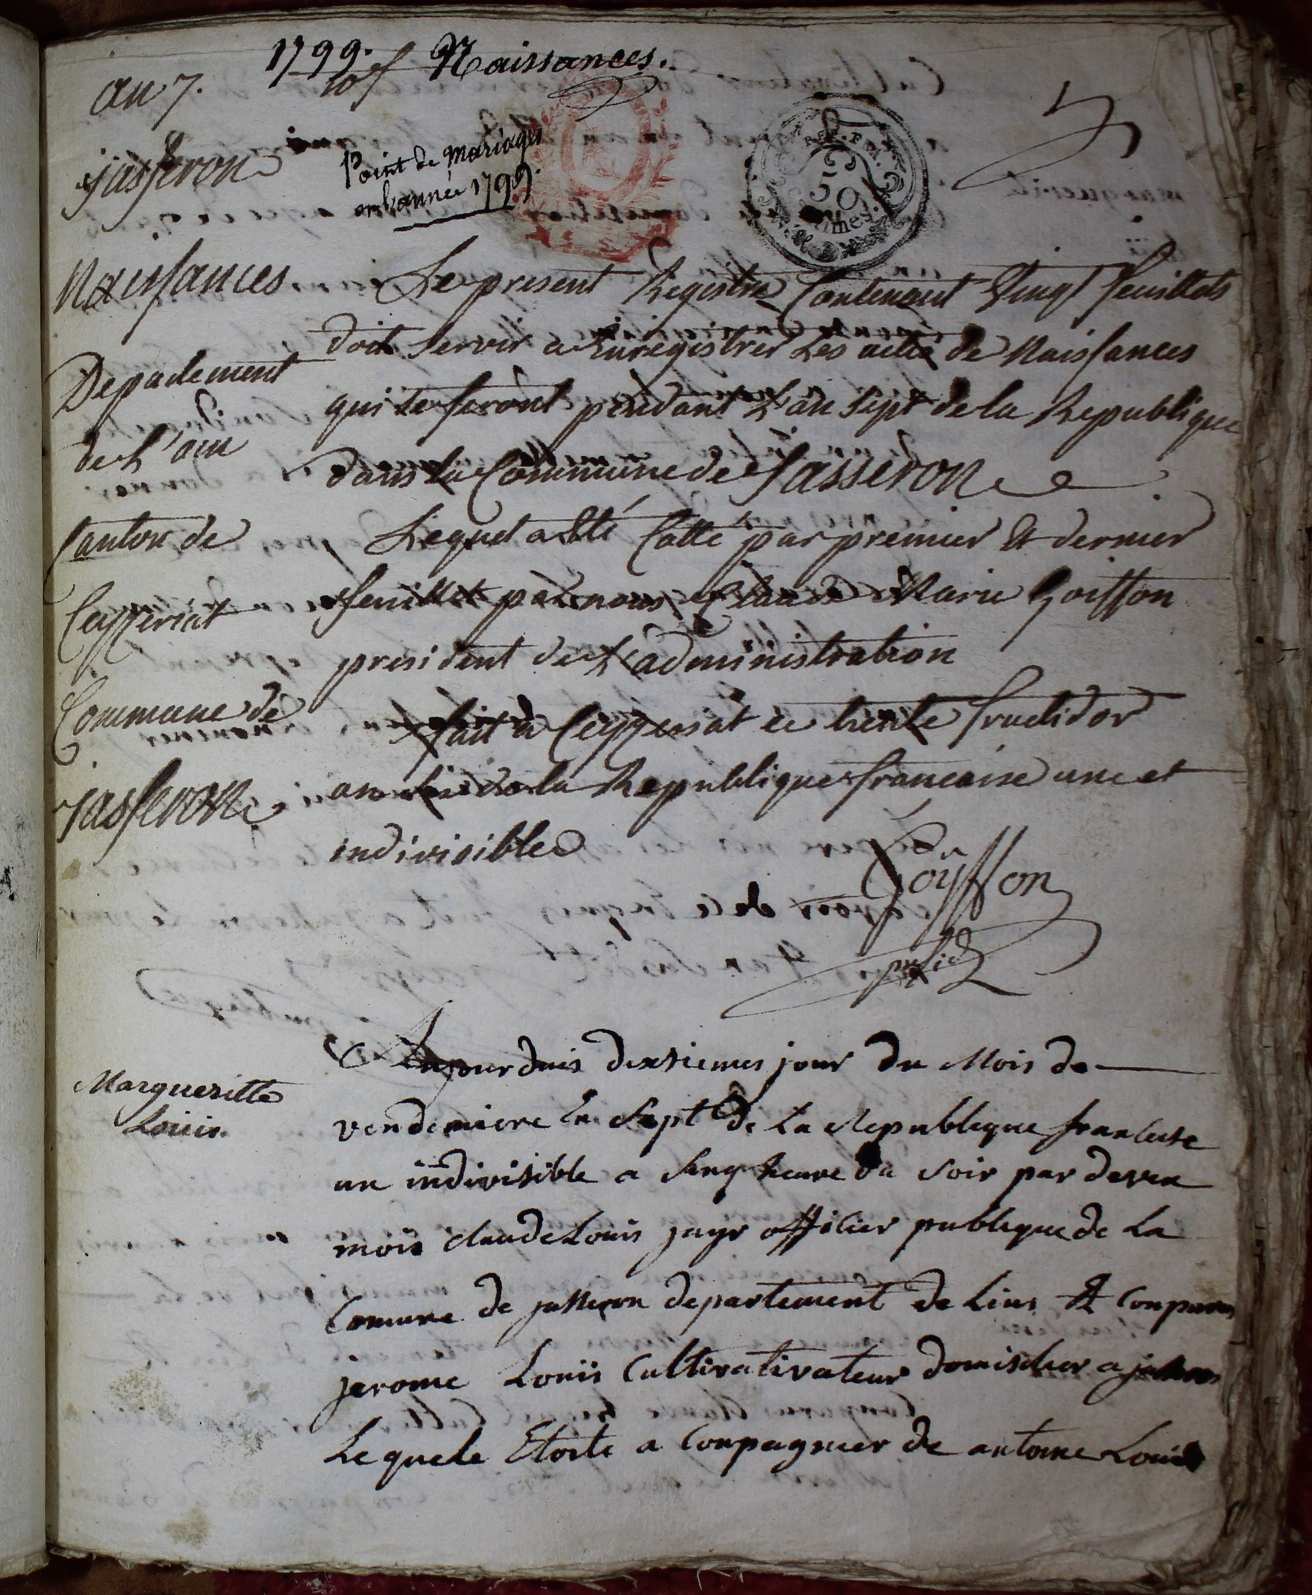 1799. Naissances.
an 7.
jasseron
Point de Mariages
en l'année 1799.
50
Naissances
Departement
de L'ain
Canton de
Ceyzeriat
Commune de
jasseron
Le present Registre Contenant Vingt feuillets
doit servir a Enregistrer Les actes de Naissances
qui se feront pendant L'an sept de la Republique
dans la Commune de Jasseron
Lequel a Eté Cotté par premier Et dernier
feuillet par nous Claude Marie Goiffon
president de L'administration
fait a Ceyzeriat ce trente fructidor
an six de la Republique francaise une et
indivisible
Goiffon
presid
Margueritte
Louis.
Aujourduis dixsiemes jour du Mois de
vendemiere En Sept de La Republeque francese
un indivisible a sinq heure du Soir par deven
mois claude Louis jayr offisier publeque de La
Comune de jasseron departement de Lins Et Conparus
jerome Louis Cultivativateur domisclier a jasseron
Lequele Etoite a Conpagnier de antoine Louis